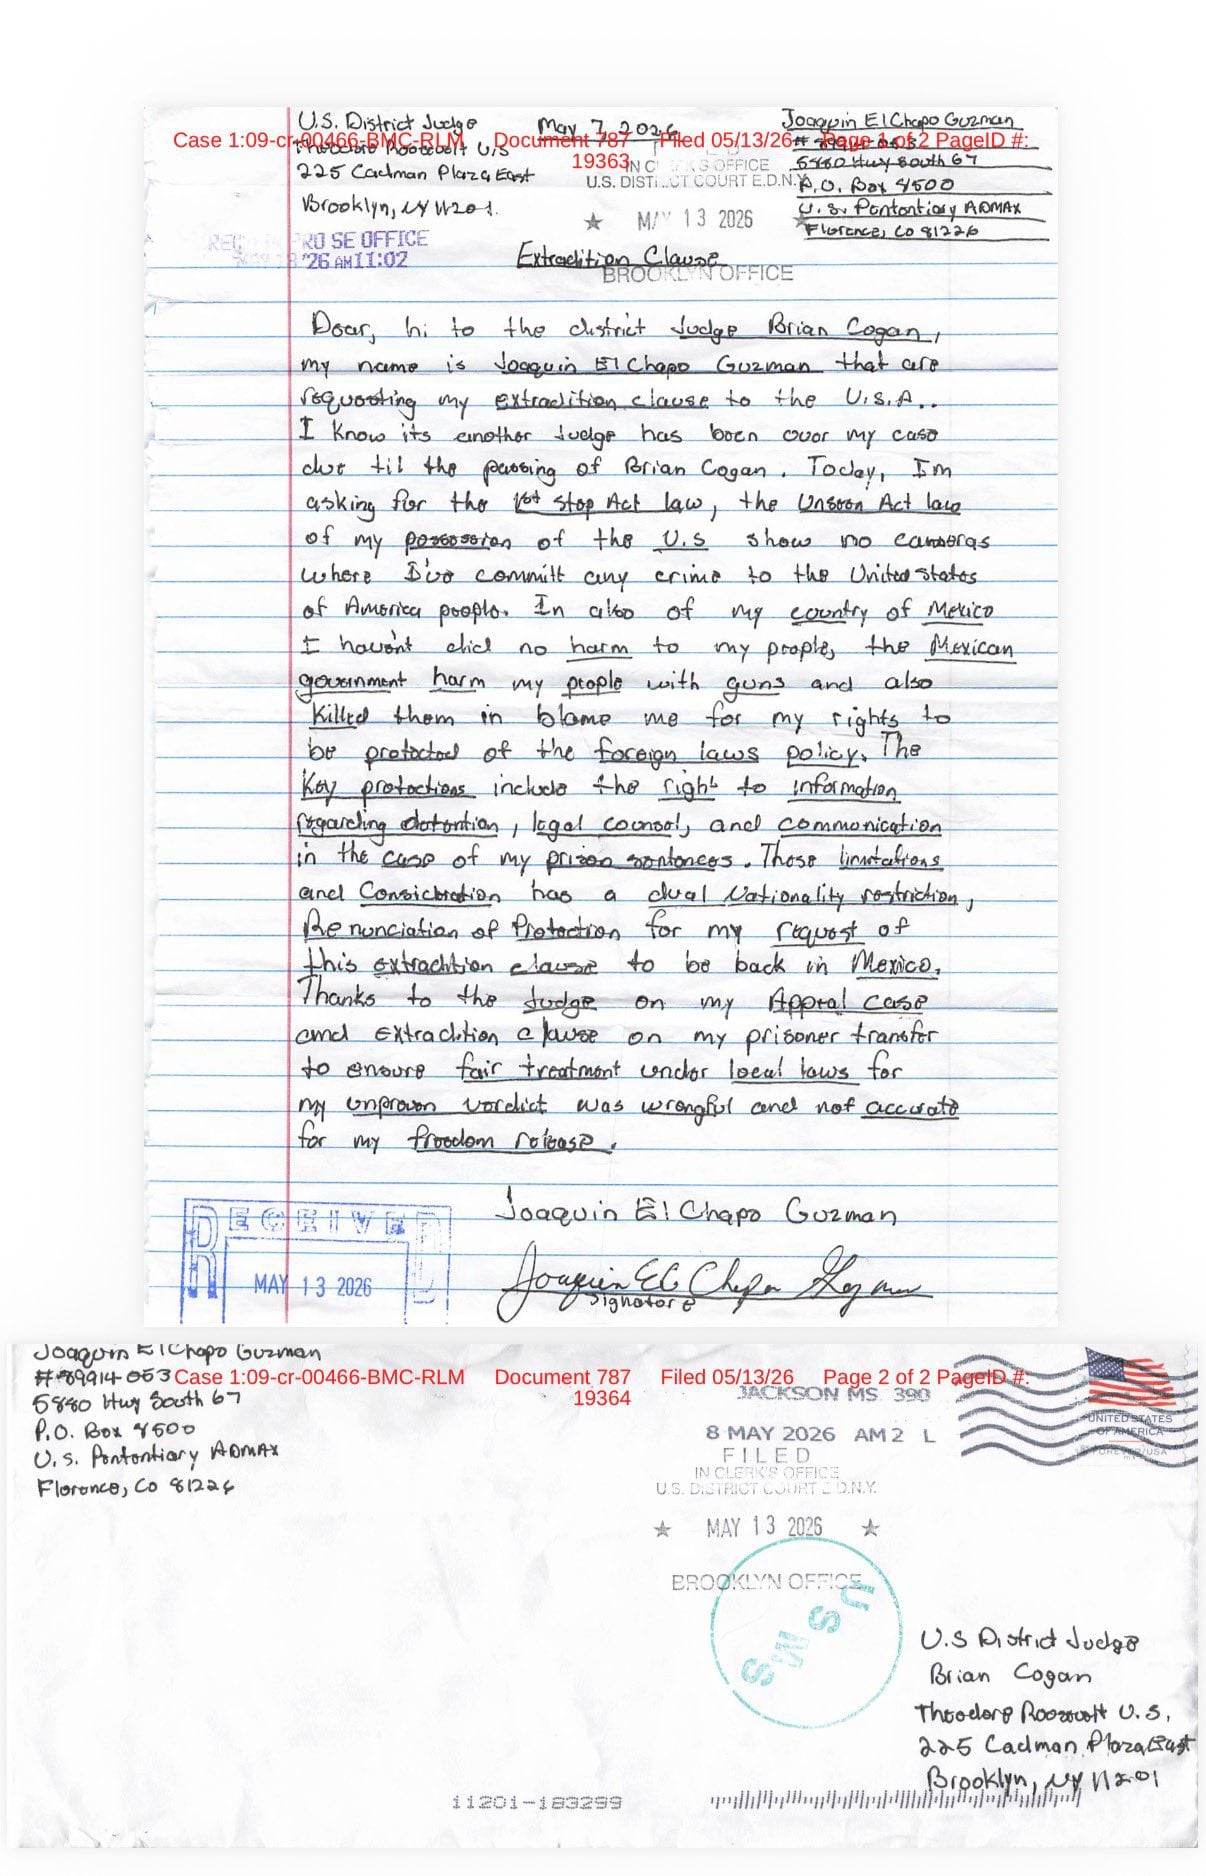 U.S. District Judge
May 7, 2026
Joaquin El Chapo Guzman
Case 1:09-cr-00466-BMC-RLM Document 787 Filed 05/13/26 Page 1 of 2 PageID #:
19363
Theodore Roosevelt U.S
225 Cadman Plaza East
Brooklyn, NY 11201.
IN CLERK'S OFFICE
U.S. DISTRICT COURT E.D.N.Y.
★ MAY 13 2026 ★
BROOKLYN OFFICE
5880 Hwy South 67
P.O. Box 8500
U.S. Pentontiary ADMAX
Florence, CO 81226
PRO SE OFFICE
'26 AM11:02
Extradition Clause
Dear, hi to the district Judge Brian Cogan,
my name is Joaquin El Chapo Guzman that are
requesting my extradition clause to the U.S.A..
I know its another Judge has been over my case
due til the passing of Brian Cogan. Today, Im
asking for the 1st Stop Act law, the Unseen Act law
of my possession of the U.S show no cameras
where I've committ any crime to the United States
of America people. In also of my country of Mexico
I haven't did no harm to my people, the Mexican
government harm my people with guns and also
killed them in blame me for my rights to
be protected of the foreign laws policy. The
Key protections include the right to information
regarding detention, legal counsel, and communication
in the case of my prison sentences. Those limitations
and Consideration has a dual Nationality restriction,
Renunciation of Protection for my request of
this extradition clause to be back in Mexico.
Thanks to the Judge on my Appeal case
and extradition clause on my prisoner transfer
to ensure fair treatment under local laws for
my unproven verdict was wrongful and not accurate
for my freedom release.
Joaquin El Chapo Guzman
Joaquin El Chapo Guzman
Signature
RECEIVED
MAY 13 2026
Joaquin El Chapo Guzman
#89914-053
Case 1:09-cr-00466-BMC-RLM Document 787 Filed 05/13/26 Page 2 of 2 PageID #:
19364
5880 Hwy South 67
P.O. Box 8500
U.S. Pentontiary ADMAX
Florence, CO 81226
JACKSON MS 390
8 MAY 2026 AM 2 L
UNITED STATES
OF AMERICA
FOREVER/USA
FILED
IN CLERK'S OFFICE
U.S. DISTRICT COURT E.D.N.Y.
★ MAY 13 2026 ★
BROOKLYN OFFICE
USMS
U.S District Judge
Brian Cogan
Theodore Roosevelt U.S.
225 Cadman Plaza East
Brooklyn, NY 11201
11201-183299